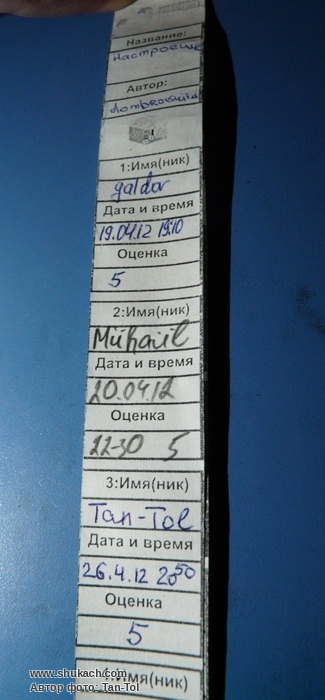 Название:
Настроение
Автор:
1:Имя(ник)
galdor
Дата и время
19.04.12 19:10
Оценка
5
2:Имя(ник)
Mühail
Дата и время
20.04.12
Оценка
22-30 5
3:Имя(ник)
Tan-Tol
Дата и время
26.4.12 23:50
Оценка
5
4:Имя(ник)
www.shukach.com
Автор фото: Tan-Tol